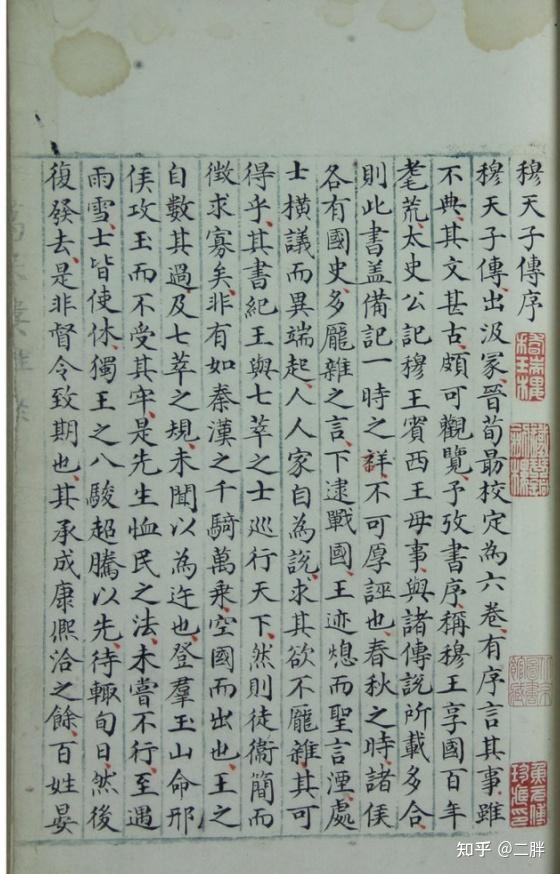 穆天子傳序
穆天子傳出汲冢晉荀勗校定為六卷有序言其事雖
不典其文甚古頗可觀覽予攷書序稱穆王享國百年
耄荒太史公記穆王賓西王母事與諸傳說所載多合
則此書盖備記一時之詳不可厚誣也春秋之時諸侯
各有國史多厖雜之言下逮戰國王迹熄而聖言湮處
士橫議而異端起人人家自為說求其欲不厖雜其可
得乎其書紀王與七萃之士巡行天下然則徒衞簡而
徵求寡矣非有如秦漢之千騎萬乘空國而出也王之
自數其過及七萃之規未聞以為迕也登羣玉山命邢
侯攻玉而不受其牢是先生恤民之法未嘗不行至遇
雨雪士皆使休獨王之八駿超騰以先待輙旬日然後
復發去是非督令致期也其承成康熈洽之餘百姓晏
知乎 @二胖